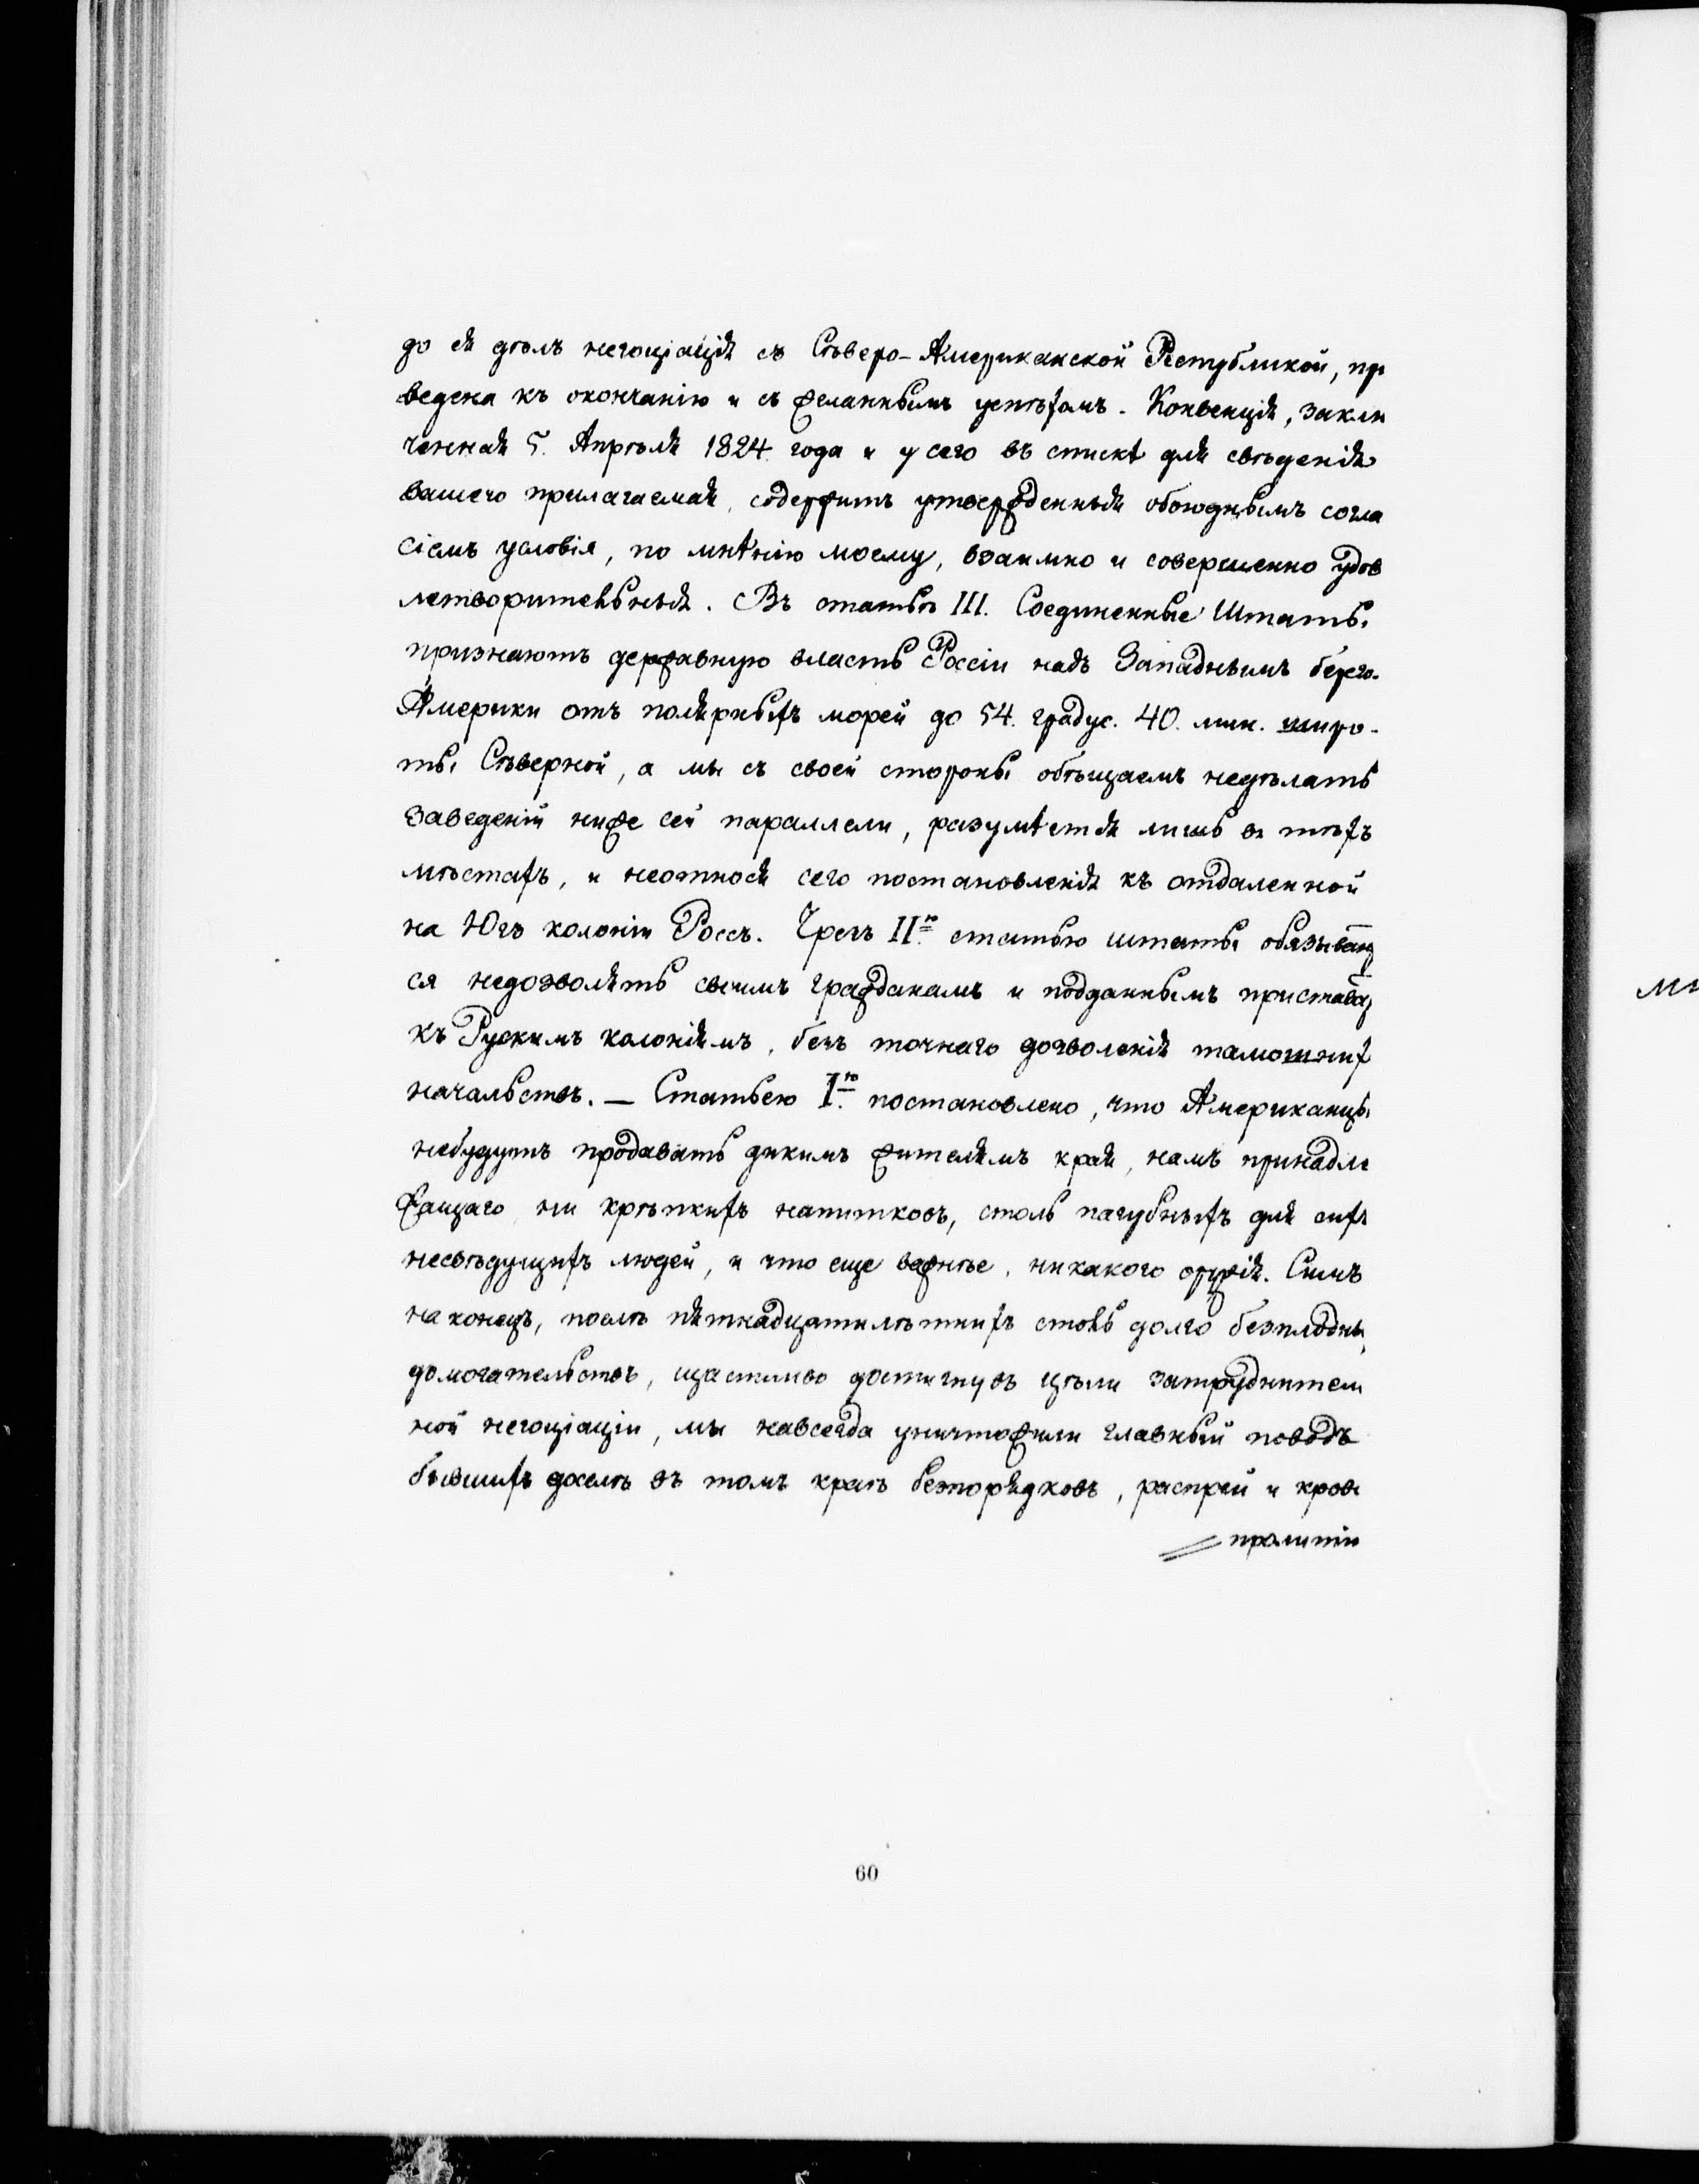 до ея дѣлъ негоціація съ Сѣверо-Американской Республикой, при
ведена къ окончанію и съ желаннымъ успѣхомъ. Конвенція, заклю
ченная 5. Апрѣля 1824 года и у сего въ спискѣ для свѣденія
вашего прилагаемая, содержитъ утвержденныя обоюднымъ согла
сіемъ условія, по мнѣнію моему, взаимно и совершенно удов
летворительныя. Въ статьѣ III. Соединенные Штаты
признаютъ державную власть Россіи надъ Западнымъ берего.
Америки отъ полярныхъ морей до 54. градус. 40. мин. широ-
ты Сѣверной, а мы съ своей стороны обѣщаемъ недѣлать
заведеній ниже сей параллели, разумѣется лишь въ тѣхъ
мѣстахъ, и неотнося сего постановленія къ отдаленной
на Югъ колоніи Россъ. Чрезъ II.ю статью штаты обязывают
ся недозволять своимъ гражданамъ и подданнымъ приставать
къ Рускимъ колоніямъ, безъ точнаго дозволенія тамошних
начальствъ. — Статьею I.ю постановлено, что Американцы
небудутъ продавать дикимъ жителямъ края, намъ принадле
жащаго ни крѣпкихъ напитковъ, столь пагубныхъ для сихъ
несвѣдущихъ людей, и что еще важнѣе, никакого оружія. Симъ
на конецъ, послѣ пятнадцатилѣтнихъ столь долго безплодны
домогательствъ, щастливо достигнувъ цѣли затруднител
ной негоціаціи, мы навсегда уничтожили главный поводъ
бывшихъ доселѣ въ томъ краѣ безпорядковъ, распрей и крово
пролитій
60